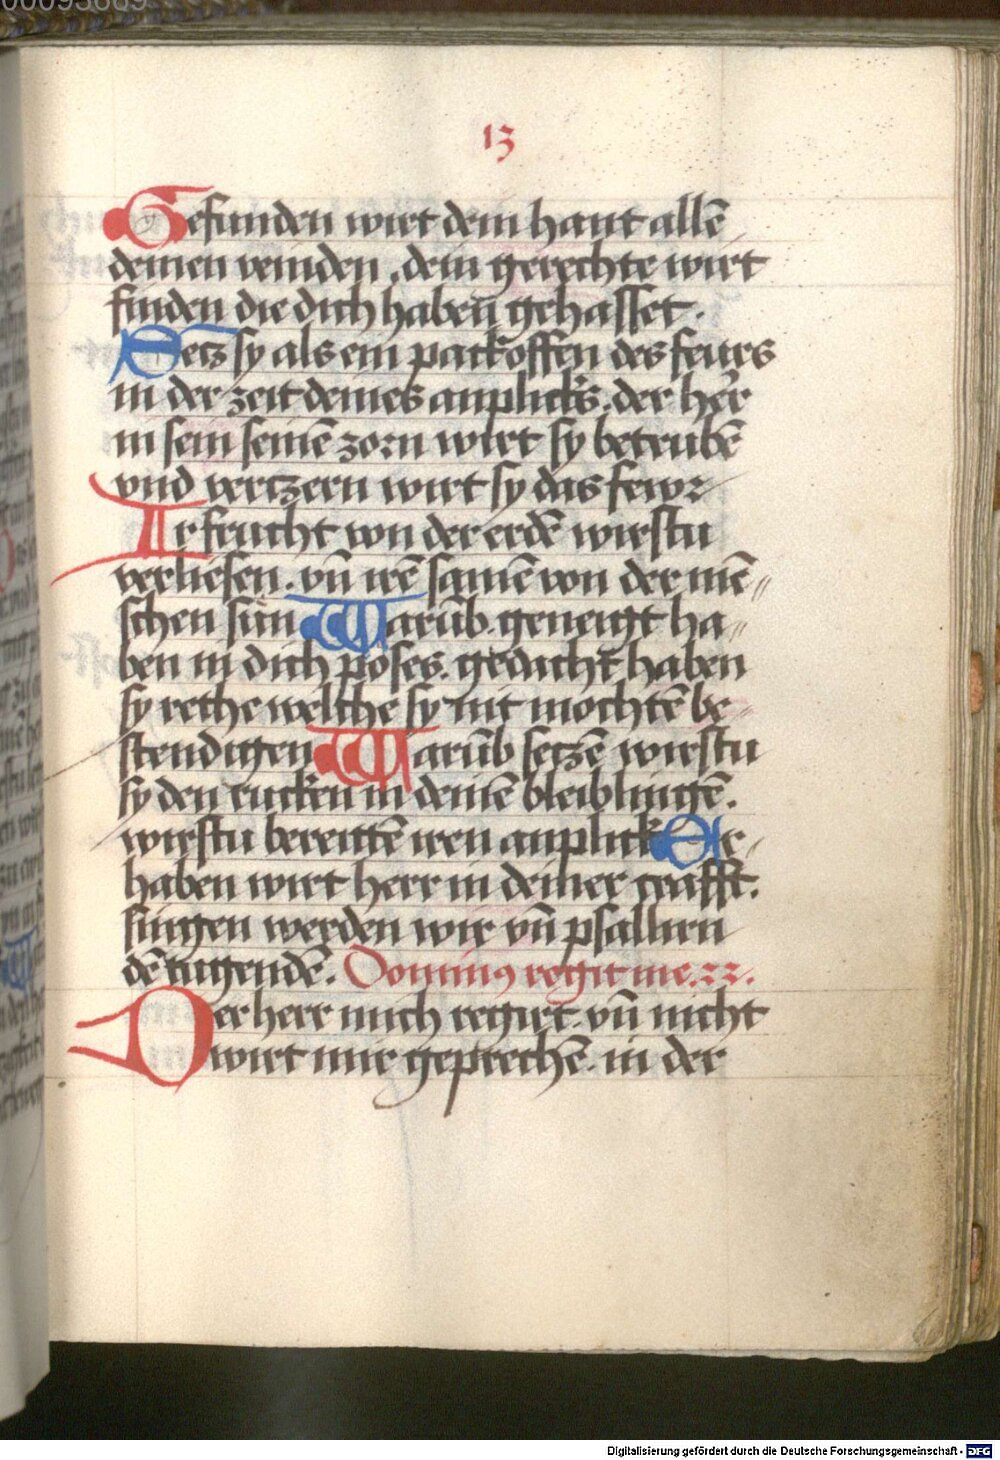 00093869
13
Gefunden wirt dem hant allē
deinen veinden. dein gerechte wirt
finden die dich haben gehasset.
Setz sy als ein packoffen des feurs
in der zeit deines anplicks. der herr
in sein seinē zorn wirt sy betrubē
vnd vertzern wirt sy das fewr
Ir frucht von der erdē wirstu
verliesen. vn̄ irē samē von der mē//
schen sun Warūb geneigt ha//
ben in dich poses. gedacht haben
sy rethe welche sy nit mochtē be-
stendigen Warūb setzē wirstu
sy den rucken in deinē bleiblingē.
wirstu bereittē iren anplick Er-
haben wirt herr in deiner crafft.
singen werden wir vn̄ psallirn
dē tugendē. Dominꝰ regit me. 22.
Der herr mich regirt. vn̄ nicht
wirt mir geprechē. in der
Digitalisierung gefördert durch die Deutsche Forschungsgemeinschaft - DFG